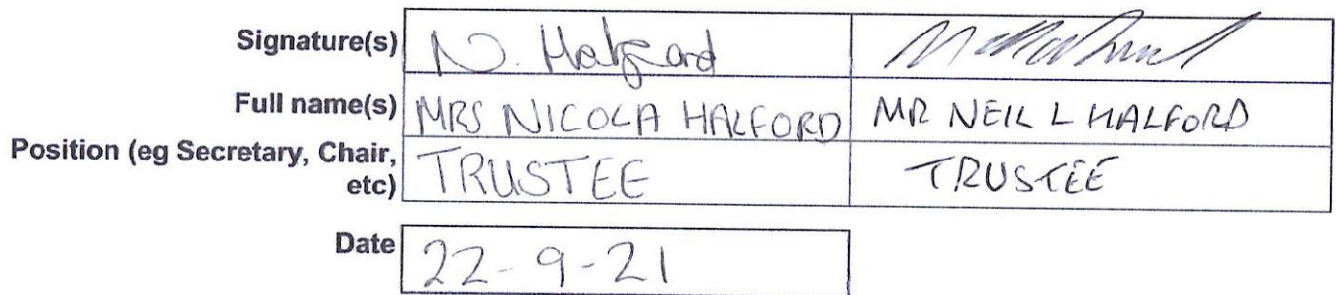 Signature(s) N. Halford
Full name(s) MRS NICOLA HALFORD MR NEIL L HALFORD
Position (eg Secretary, Chair,
etc) TRUSTEE TRUSTEE
Date 22-9-21